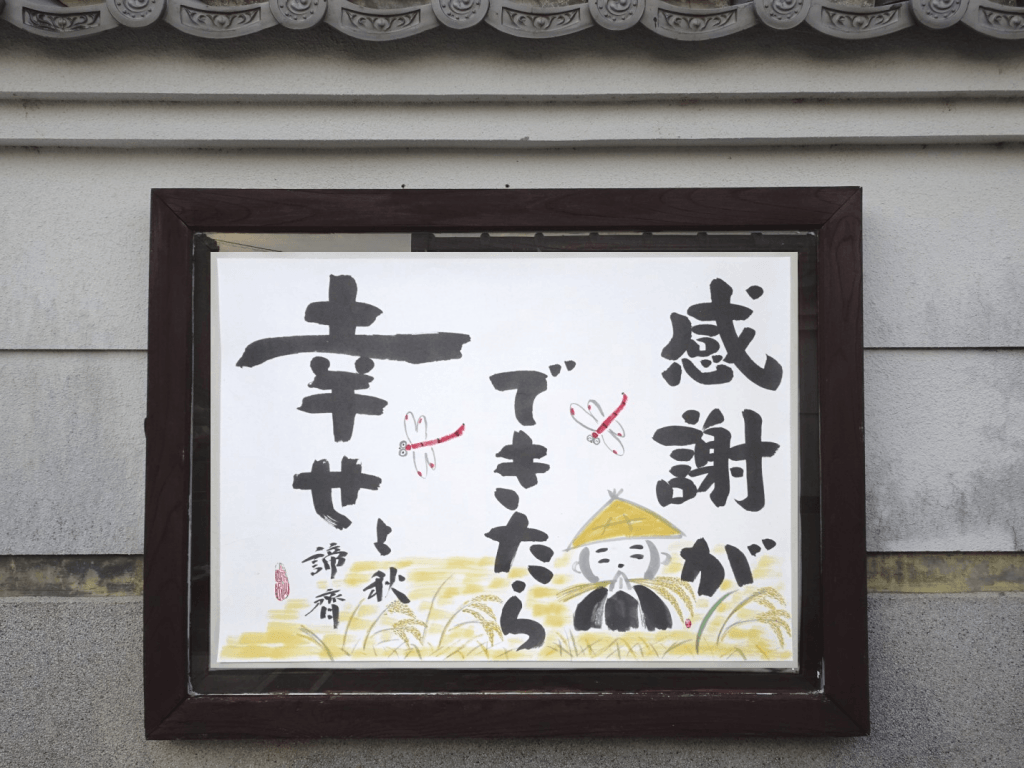 感謝が
できたら
幸せ
秋
諦齊